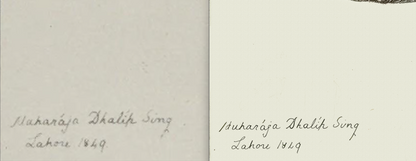 Maharája Dhalíp Sing
Lahore 1849
Muharája Dhalíp Sing
Lahore 1849